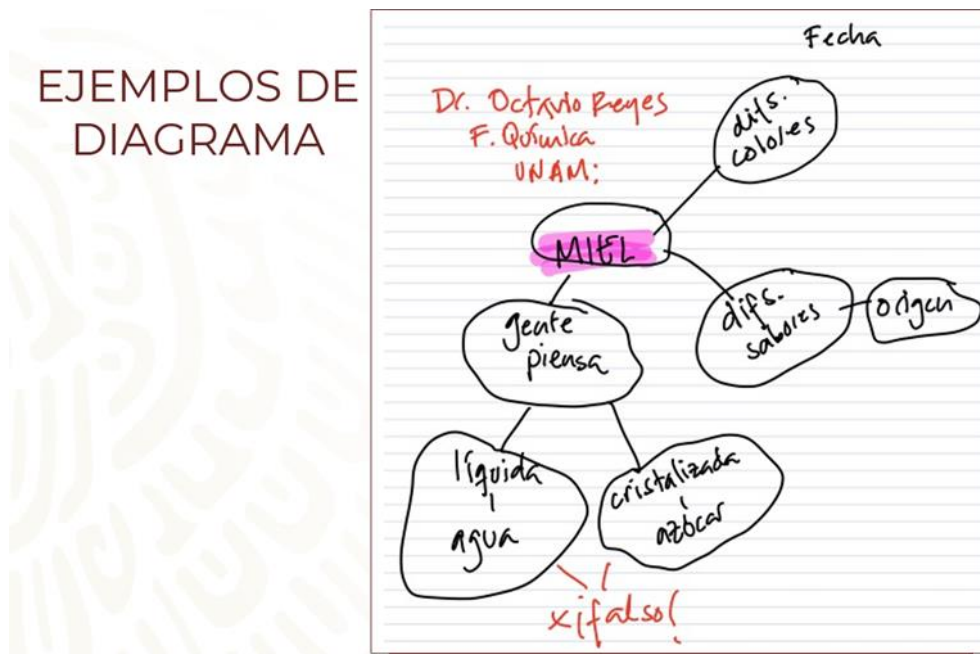 EJEMPLOS DE
DIAGRAMA
Fecha
Dr. Octavio Reyes
F. Química
UNAM:
difs.
colores
MIEL
difs.
sabores
origen
gente
piensa
líquida
agua
cristalizada
azúcar
x¡falso!